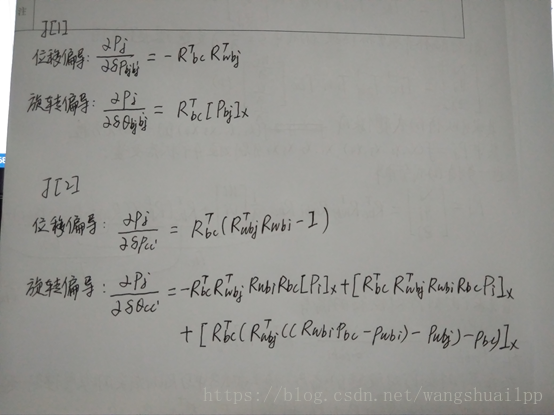 注
J[1]
位移偏导: ∂Pj/∂δPbjb'j = -R^T_bc R^T_wbj
旋转偏导: ∂Pj/∂δθbjb'j = R^T_bc [Pbj]x
J[2]
位移偏导: ∂Pj/∂δPcc' = R^T_bc (R^T_wbj Rwbi - I)
旋转偏导: ∂Pj/∂δθcc' = -R^T_bc R^T_wbj Rwbi Rbc [Pi]x + [R^T_bc R^T_wbj Rwbi Rbc Pi]x
+ [R^T_bc (R^T_wbj ((Rwbi Pbc - Pwbi) - Pwbj) - Pbc)]x
https://blog.csdn.net/wangshuailpp